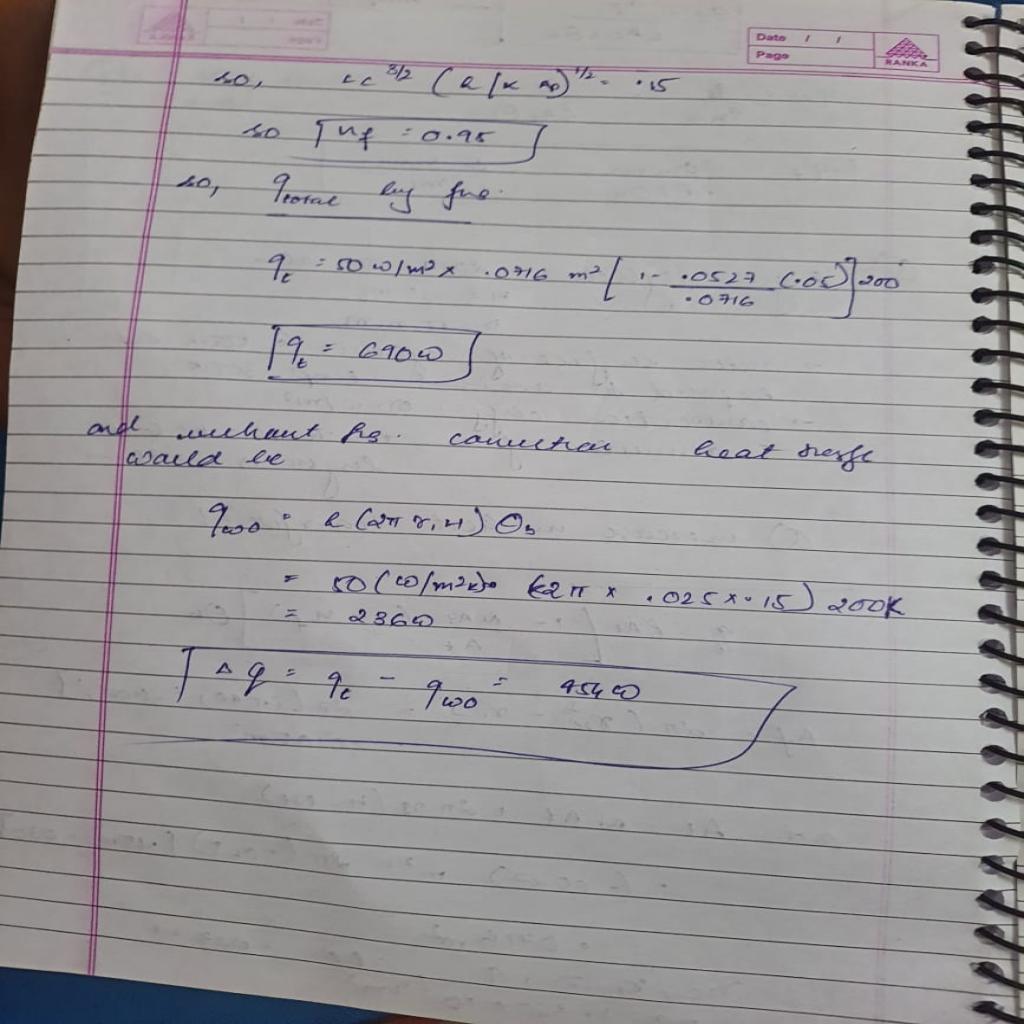 Date / /
Page
RANKA
so, Lc^3/2 (h/k Ap)^1/2 = .15
so ηf = 0.95
so, qtotal by fins.
qt = 50 W/m² × .0716 m² [1 - .0527/.0716 (.05)] 200
qt = 690 W
and without fig. convection heat
would be
qwo = h (2π r1 H) θb
= 50 (W/m²K) (2π × .025 × .15) 200K
= 236 W
Δq = qt - qwo = 454 W